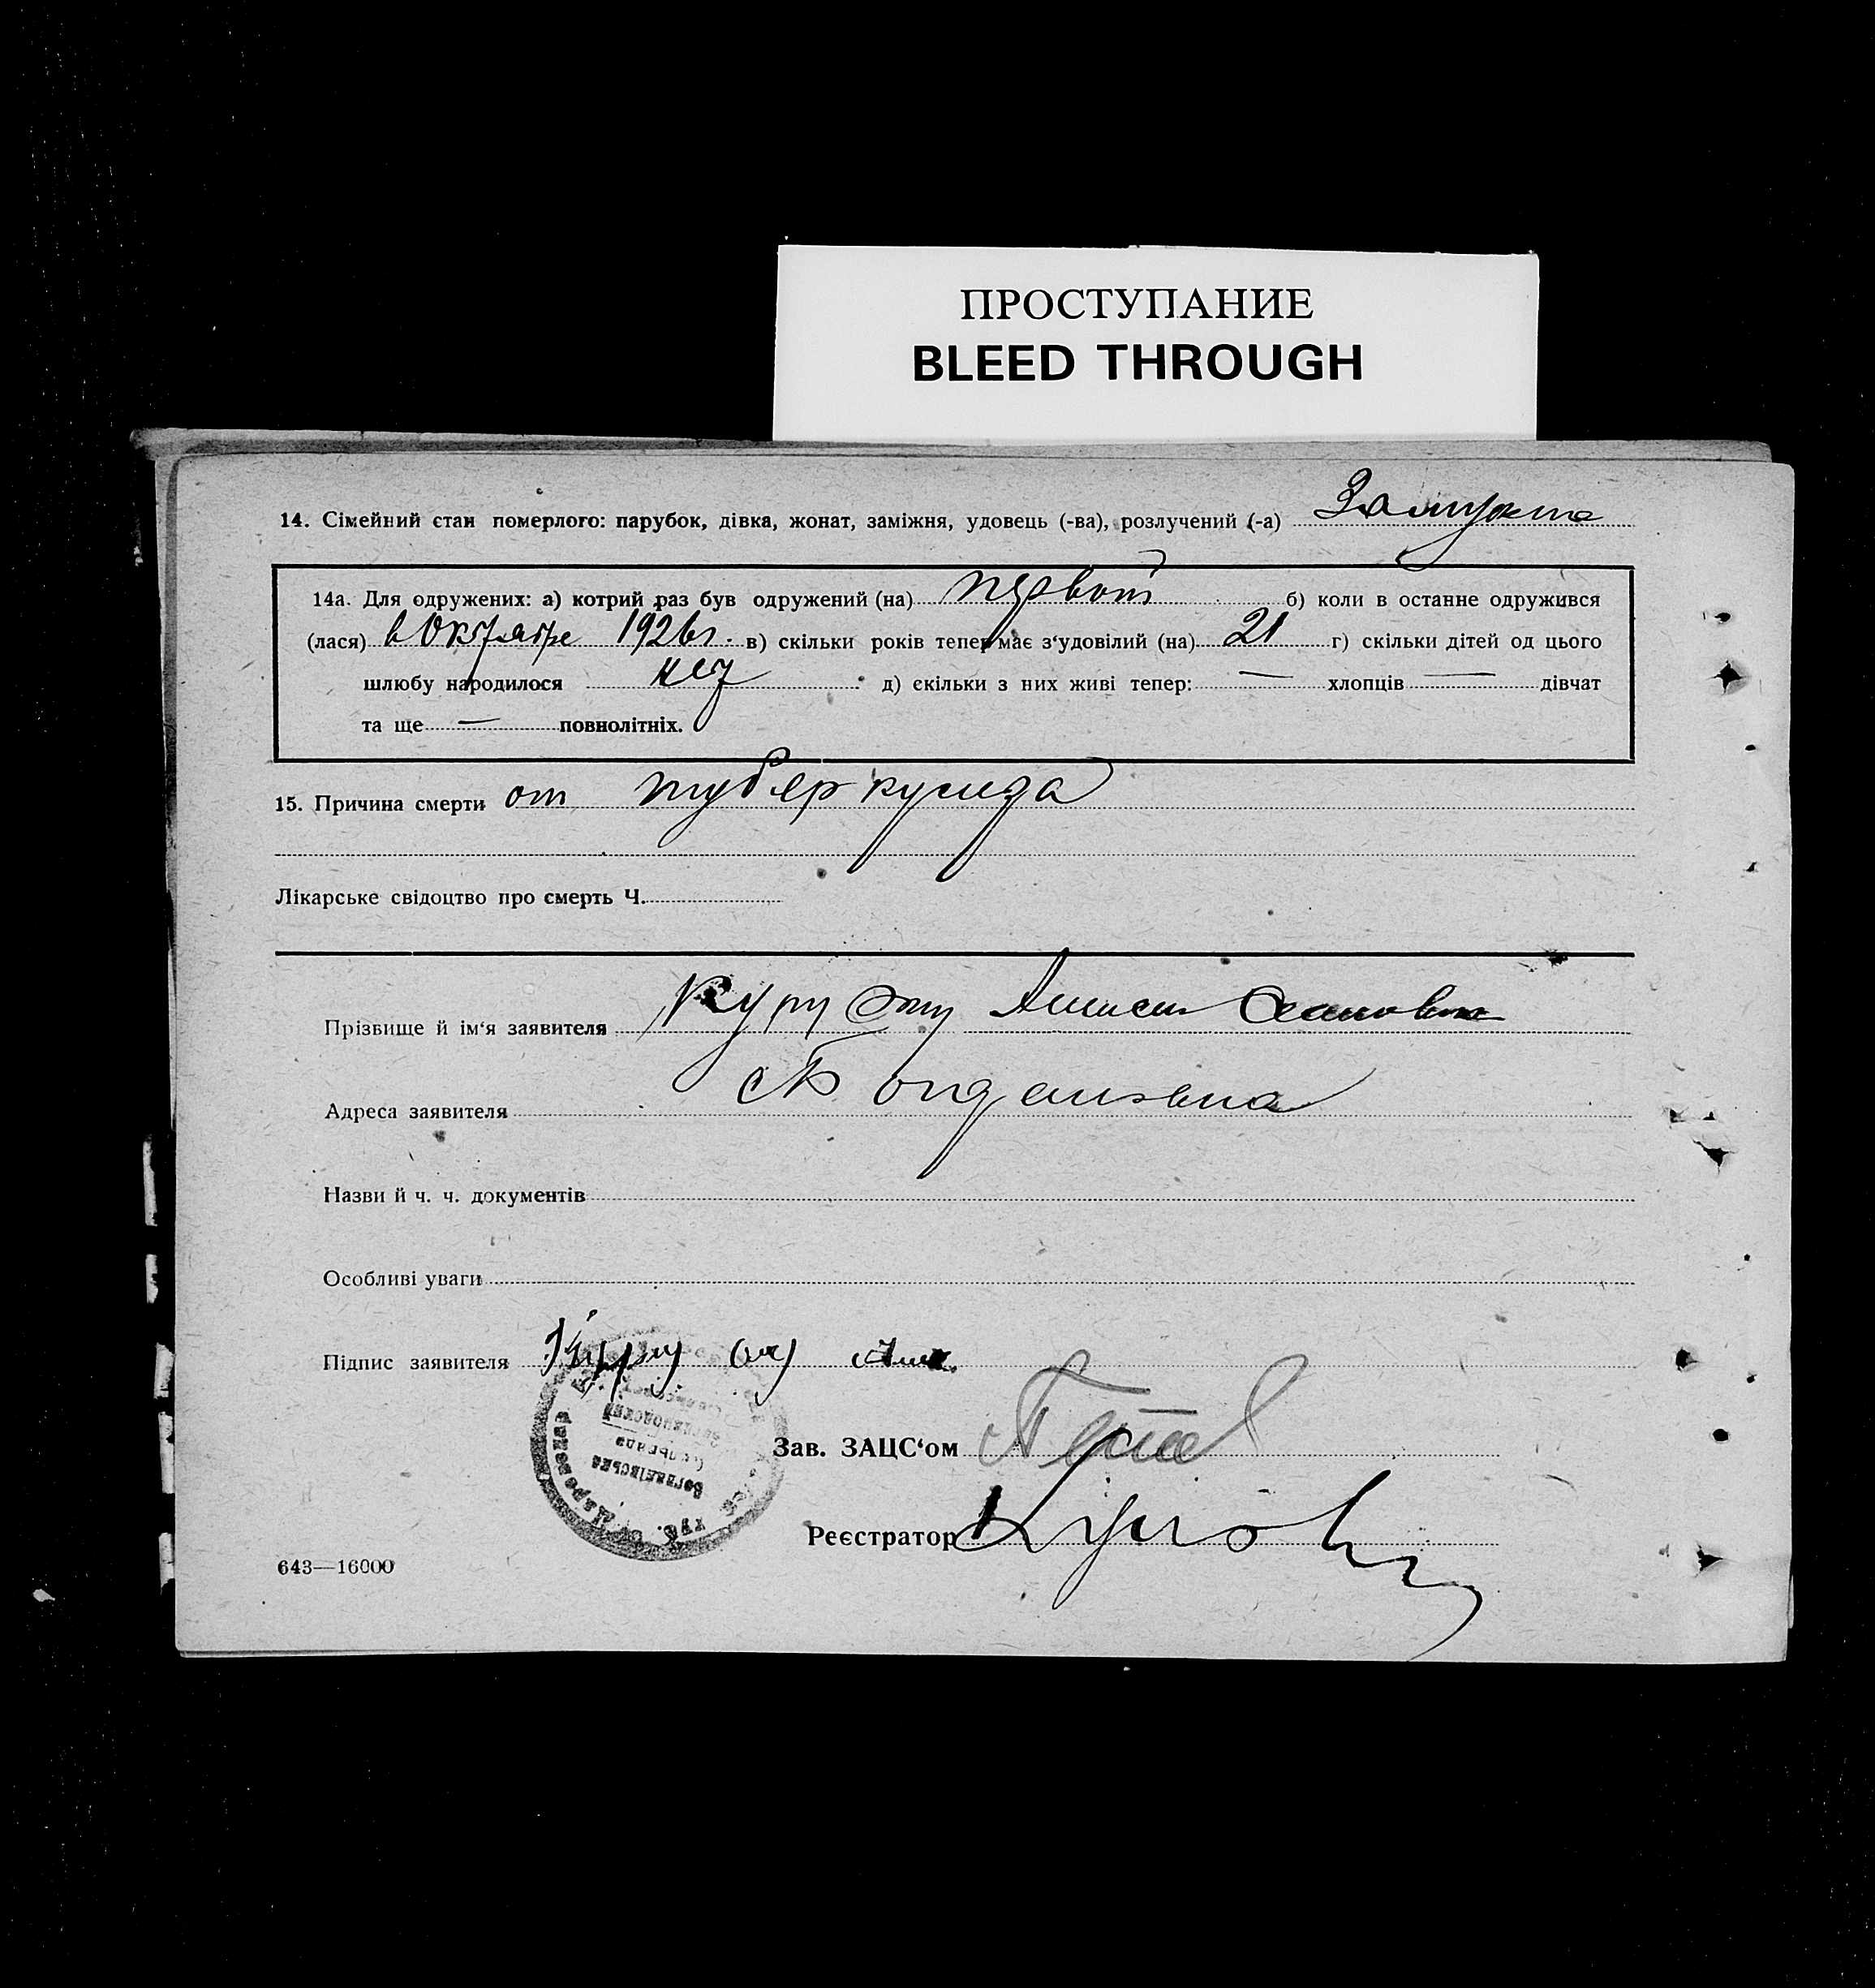 ПРОСТУПАНИЕ
BLEED THROUGH
14. Сімейний стан померлого: парубок, дівка, жонат, заміжня, удовець (-ва), розлучений (-а) Замужна
14а. Для одружених: а) котрий раз був одружений (на) первой б) коли в останне одружився
(лася) в Октябре 1926г. в) скільки років тепер має з‘удовілий (на) 21 г) скільки дітей од цього
шлюбу народилося нет д) скільки з них живі тепер: — хлопців — дівчат
та ще — повнолітніх.
15. Причина смерти от туберкулиза
Лікарське свідоцтво про смерть Ч.
Прізвище й ім‘я заявителя
Адреса заявителя
Назви й ч. ч. документів
Особливі уваги
Підпис заявителя
Зав. ЗАЦС‘ом
Реєстратор
643—16000